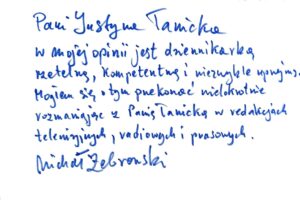 Pani Justyna Tanicka
w mojej opinii jest dziennikarką
rzetelną, kompetentną i niezwykle uprzejmą.
Mogłem się o tym przekonać niejednokrotnie
rozmawiając z Panią Tanicką w redakcjach
telewizyjnych, radiowych i prasowych.
Michał Żebrowski